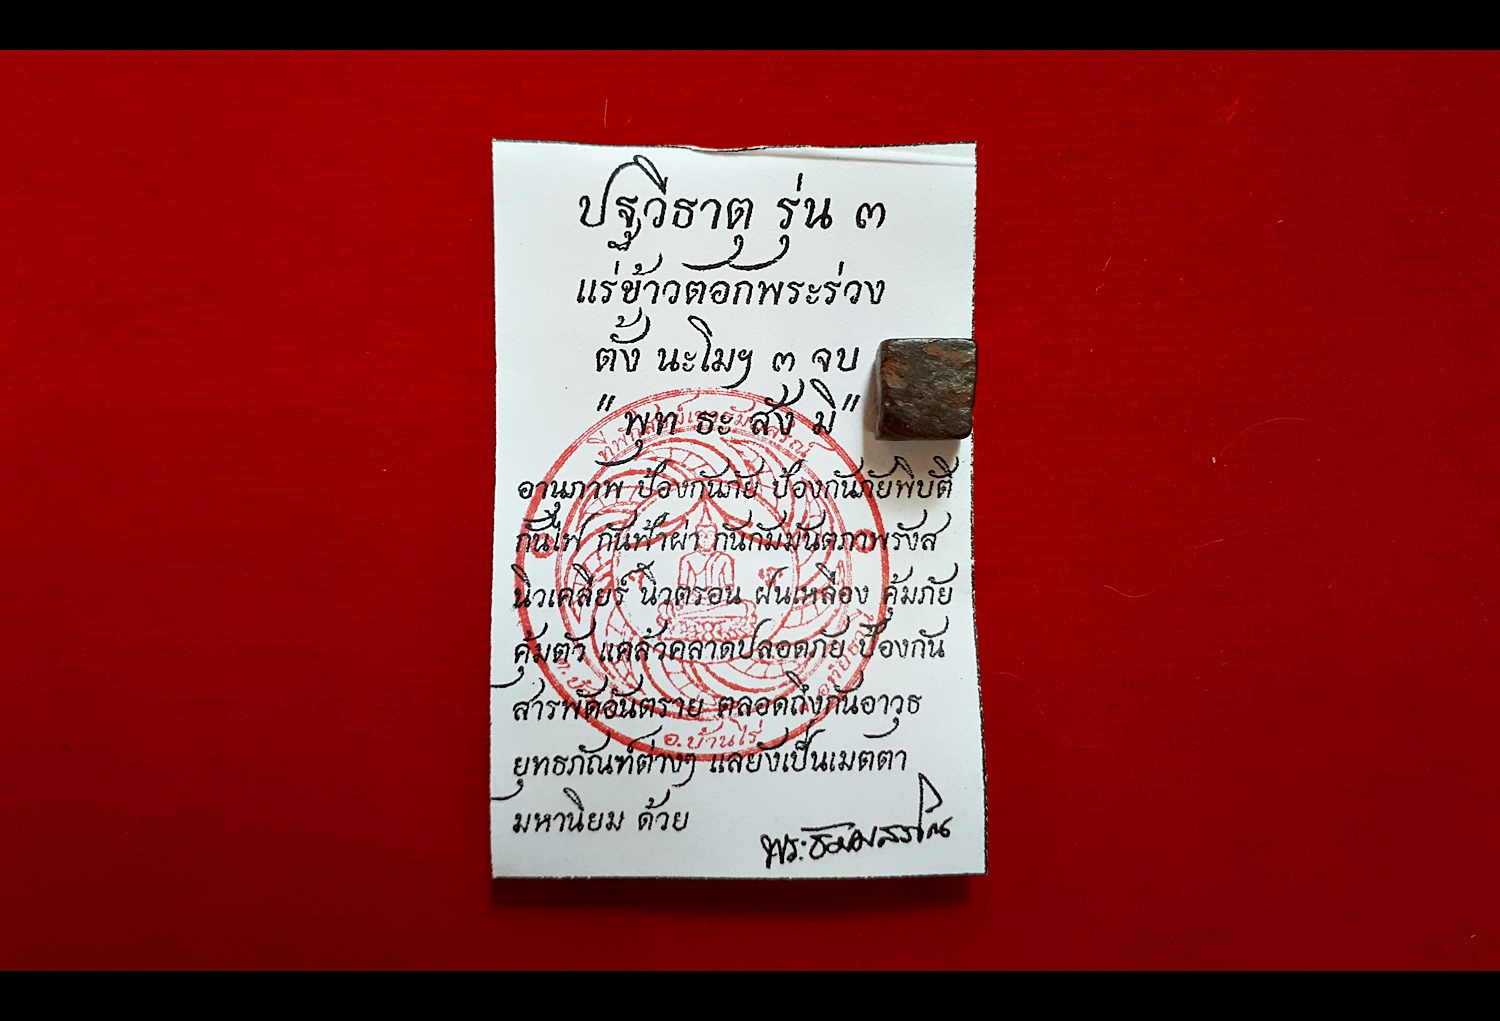 ปฐวีธาตุ รุ่น ๓
แร่ข้าวตอกพระร่วง
ตั้ง นะโมฯ ๓ จบ
"พุท ธะ สัง มิ"
อานุภาพ ป้องกันภัย ป้องกันภัยพิบัติ
กันไฟ กันฟ้าผ่า กันกัมมันตภาพรังส
นิวเคลียร์ นิวตรอน ฝนเหลือง คุ้มภัย
คุ้มตัว แคล้วคลาดปลอดภัย ป้องกัน
สารพัดอันตราย ตลอดถึงกันอาวุธ
ยุทธภัณฑ์ต่างๆ แลยังเป็นเมตตา
มหานิยม ด้วย
อ.บ้านไร่